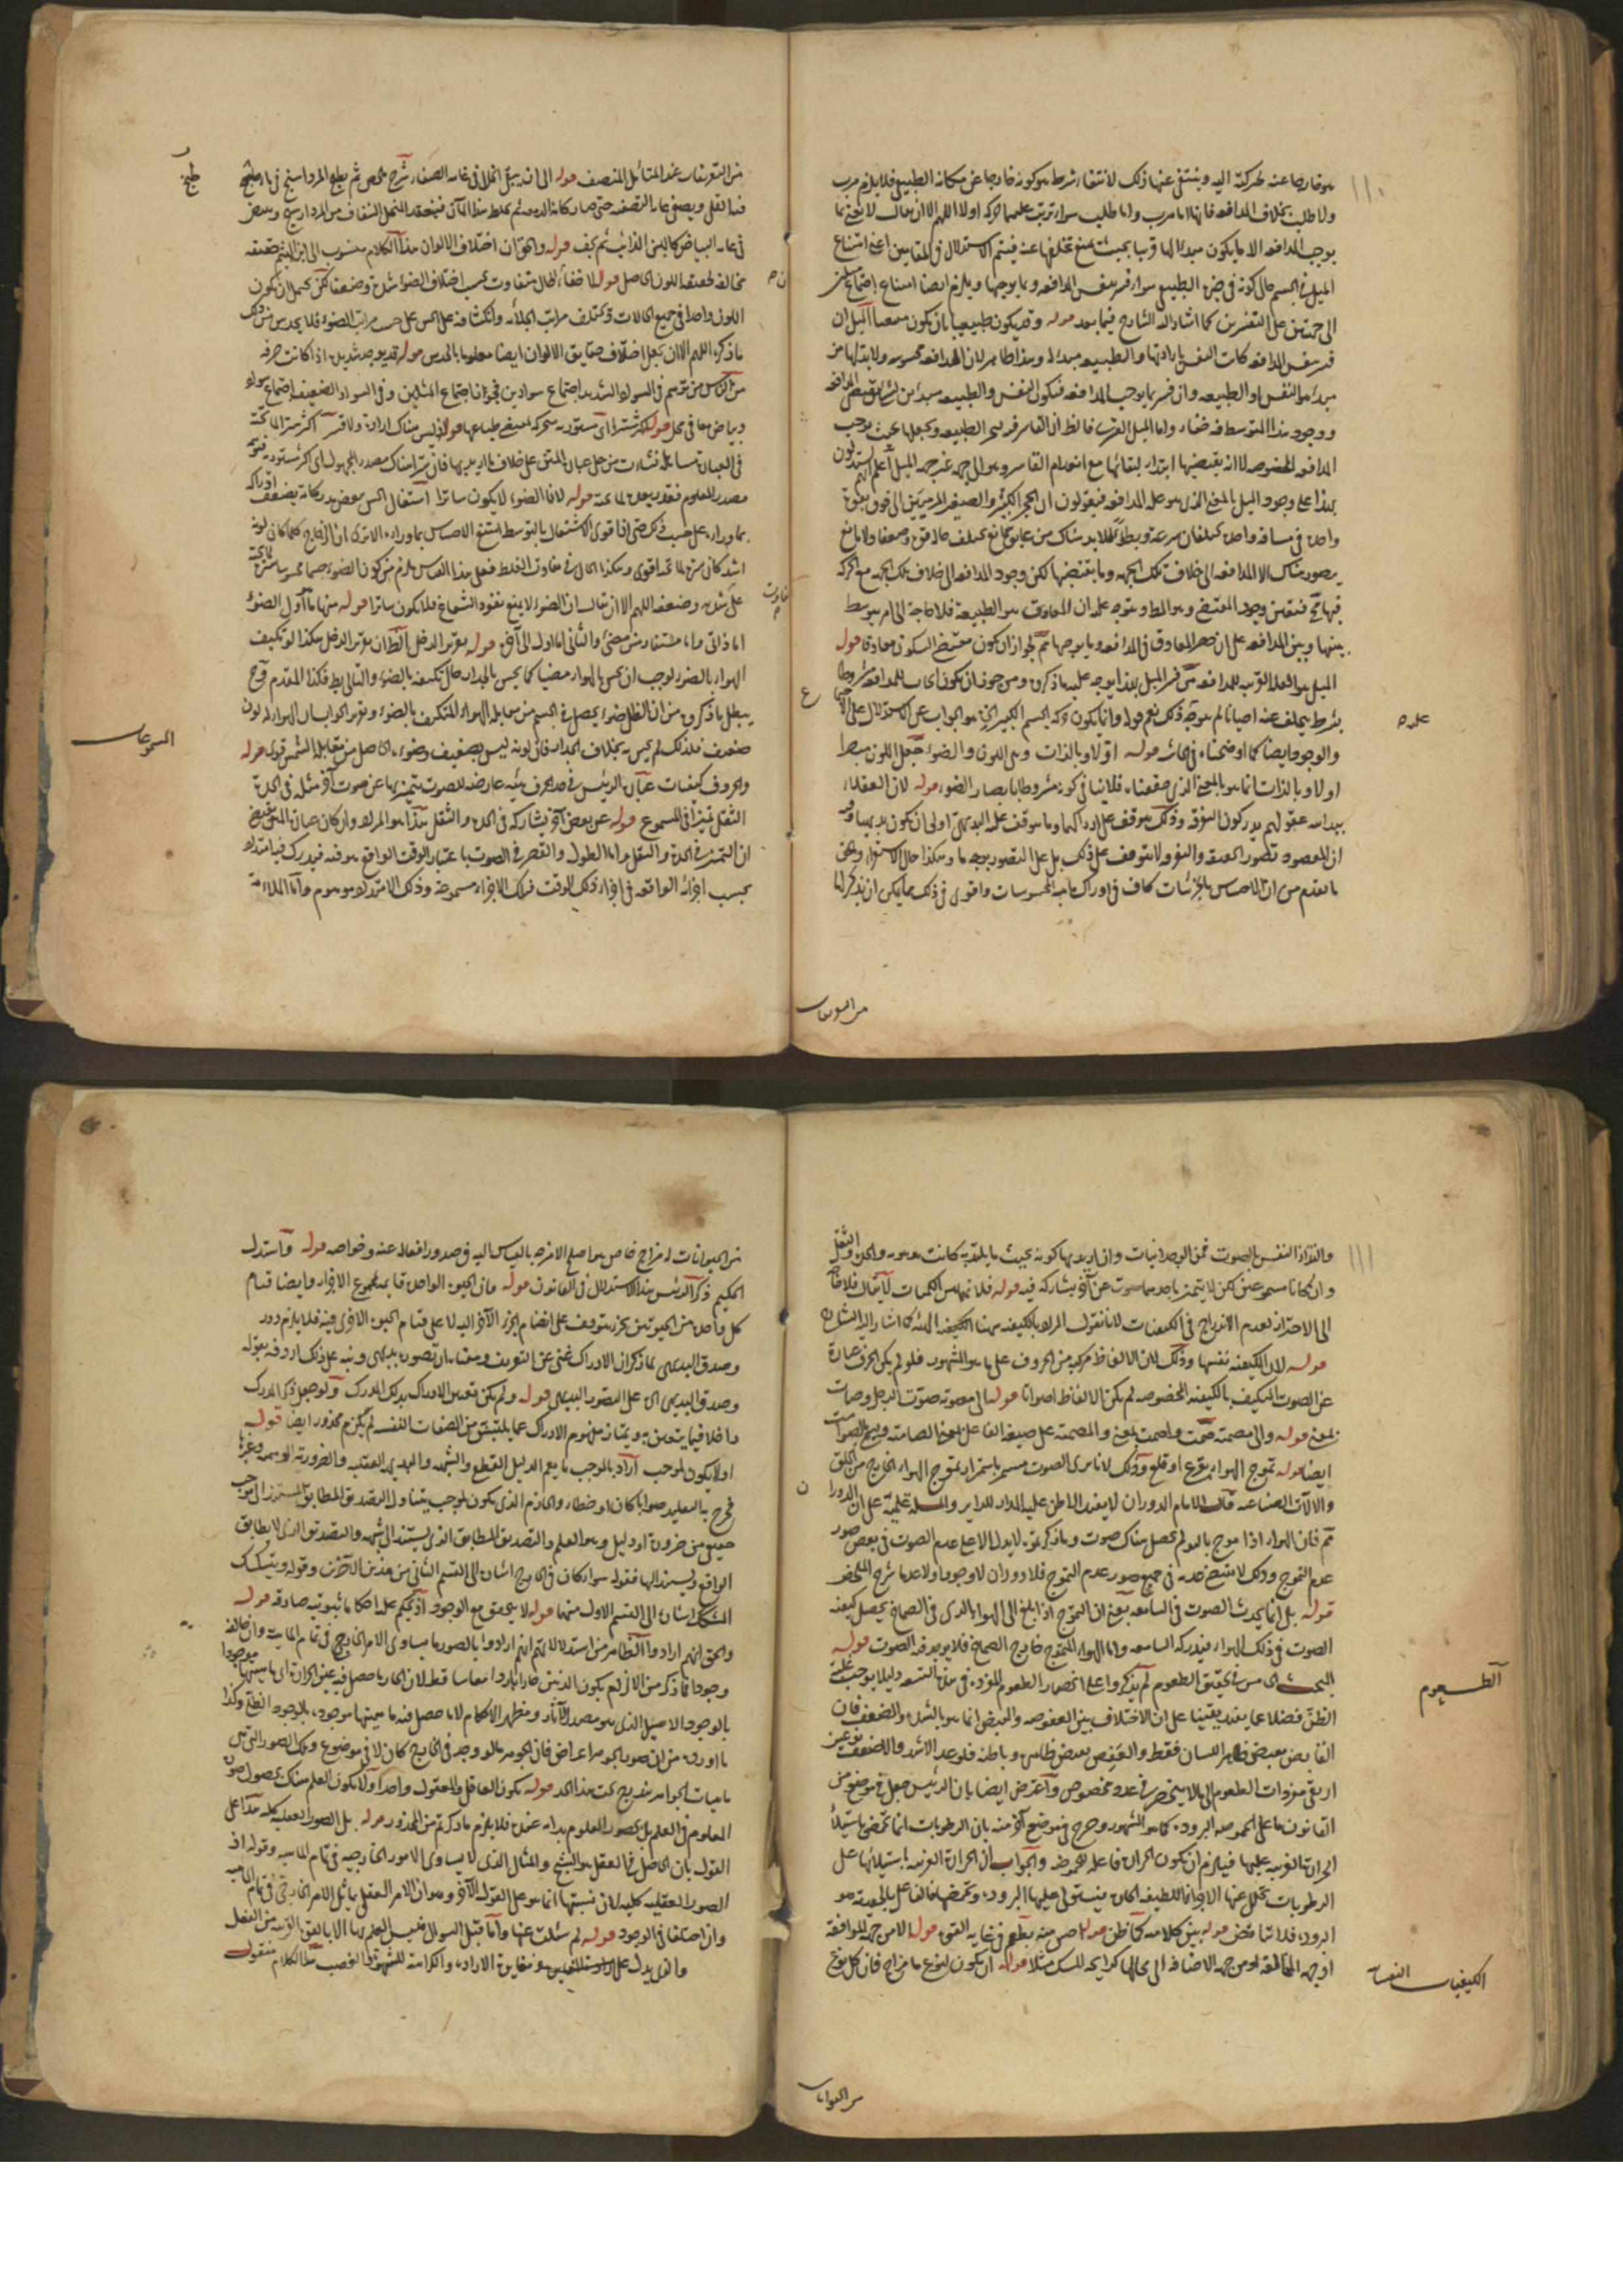 ١١٠
هو خارجا عنه لحركته اليه وينتفى عنها ذلك لانتفاء شرطه هو كونه خارجا عن مكانه الطبيعى فلا يلزم هرب
ولا طلب بخلاف المدافعة فانها اما هرب واما طلب سواء ترتب عليهما حركة اولا اللهم الا ان يقال لا نعنى بما
يوجب المدافعة الا ما يكون مبدأ لها قريبا بحيث يمتنع تخلفها عنه فيتم الاستدلال فى المقامين اعنى امتناع
الميل فى الجسم حال كونه فى حيزه الطبيعى سواء فسر بنفس المدافعة او بما يوجبها ويلزم ايضا امتناع اجتماع ميلين
الى جهتين على التفسيرين كما اشار اليه الشارح فيما بعد قوله وقد يكون طبيعيا بان يكون
فسر بنفس المدافعة كانت النفس بارادتها والطبيعة مبدأ له وهذا ظاهر لان المدافعة محسوسة ولا بد لها من
مبدأ هو النفس او الطبيعة وان فسر بما يوجب المدافعة فيكون النفس والطبيعة مبدأ
ووجود هذا المتوسط فيه خفاء واما الميل القسرى فالظ ان القاسر فيه يسخر الطبيعة ويجعلها بحيث يوجب
المدافعة المخصوصة لا انه يقتضيها ابتداء لبقائها مع انعدام القاسر وهو الى جهة غير جهة الميل اعلم انهم يستدلون
بهذا على وجود الميل بالمعنى الذى هو علة المدافعة فيقولون ان الحجر الكبير والصغير المرميين الى فوق بقوة
واحدة فى مسافة واحدة يختلفان سرعة وبطأ فلا بد هناك من عايق مانع يختلف حاله قوة وضعفا ولا مانع
يتصور هناك الا المدافعة الى خلاف تلك الجهة وما يقتضيها لكن وجود المدافعة الى خلاف تلك الجهة مع الحركة
فيها مح فتعين وجود المقتضى وهو المط ويتوجه عليه ان المعاوق هو الطبيعة فلا حاجة الى امر يتوسط
بينها وبين المدافعة على ان حصر المعاوق فى المدافعة وما يوجبها تم لجواز ان يكون مقتضى السكون معاوقا قوله
الميل هو العلة القريبة للمدافعة من فسر الميل بهذا يوجه عليه ما ذكره ومن جوز ان يكون ايجابه للمدافعة مشروطا
بشرط يتخلف عنه احيانا لم يتوجه ذلك نعم قوله وانما يكون حركة الجسم الكبير الخ هو الجواب عن الاستدلال على
والوجود ايضا كما اوضحناه فى الحاشية قوله اولا وبالذات وهى اللون والضوء جعل اللون مبصرا
اولا وبالذات انما هو بالمعنى الذى حققناه فلا ينافى كونه مشروطا بابصار الضوء قوله لان العقلاء
ببداهة عقولهم يدركون التفرقة وذلك موقوف على ادراكهما وما يتوقف عليه البديهى اولى ان يكون بديهيا وفيه
ان المقصود تصور الحقيقة والتفرقة لا يتوقف على ذلك بل على التصور بوجه ما وهكذا حال الاستقراء والحق
ما تقدم من ان الاحساس بالجزئيات كاف فى ادراك ماهية المحسوسات واقوى فى ذلك مما يمكن ان يذكر لها
من التعريفات
علة ص
من التعريفات عند المتأمل المنصف قوله الى انه يبقى الخلل فى غاية الصفاء شرح ملخص ثم يطبخ المرداسنج فى ماء طبخ
فيه القلى ويصفى غاية التصفية حتى صار كانه الدمعة ثم يخلط هذا الماآن فينعقد المنحل الشفاف من المرداسنج ويبيض
فى غاية البياض كاللبن الرائب ثم يجف قوله والحق ان اختلاف الالوان هذا الكلام منسوب الى ابن الهيثم حقيقة
مخالفة لحقيقة اللون الحاصل قوله لا خفاء فى ان الحال متفاوت بحسب اختلاف الضوء شدة وضعفا لكن يحتمل ان يكون
اللون واحدا فى جميع الحالات ويختلف مراتب الجلاء وانكشافه على الحس على حسب مراتب الضوء فلا يحدس من ذلك
ما ذكره اللهم الا ان يجعل اختلاف حقايق الالوان ايضا معلوما بالحدس قوله قد يوجد شديدة اذا كانت صرفة
من الناس من توهم فى السواد الشديد اجتماع سوادين تجويزا لاجتماع المثلين وفى السواد الضعيف اجتماع سواد
وبياض معا فى محل قوله اكثر سترا اى مستورية متحركة بمقتضى طباعها قوله اذ ليس هناك ارادة ولا قسر اكثر سترا لما تحته
فى العبارة تسامح نشأت من حمل عبارة المتن على خلاف ما اريد بها فان سترا هناك مصدر المجهول اى اكثر مستورية
مصدر المعلوم فقيد بقوله لما تحته قوله لان الضوء لا يكون ساترا اشتغال الحس ببعض مدركاته يضعف ادراكه
بما وراءه على حسب ذكر حتى اذا قوى الاشتغال بالمتوسط امتنع الاحساس بما وراءه الا ترى ان الزجاج كلما كان لونه
اشد كان ستره لما تحته اقوى وهكذا الحال فى تفاوت الغلظ فعلى هذا القياس يلزم من كون الضوء جسما محسوسا
على شدته وضعفه اللهم الا ان يقال ان الضوء لا يمنع نفوذ الشعاع فلا يكون ساترا قوله منها ما اول الضوء
اما ذاتى واما مستفاد من مضئ والثانى اما اول الى آخره قوله تقرير الدخل الظ ان تقرير الدخل هكذا لو تكيف
الهواء بالضوء لوجب ان يحس بالهواء مضيئا كما يحس بالجدار حال تكيفه بالضوء والتالى بط فكذا المقدم وح
يبطل ما ذكره من ان الظل ضوء يحصل فى الجسم من مقابلة الهواء المتكيف بالضوء وتقرير الجواب ان الهواء له لون
ضعيف فلذلك لم يحس به بخلاف الجدار فان لونه ليس بضعيف وضوءه الحاصل من مقابلة الشمس قوى قوله
والحروف كيفيات عبارة الرئيس فى حد الحرف هيئة عارضة للصوت يتميز بها عن صوت آخر مثله فى الحدة
الثقل تميزا فى المسموع قوله عن بعض آخر يشاركه فى الحدة والثقل هذا هو المراد وان كان عبارة المتن
ان التميز فى الحدة والثقل واما الطول والقصر فى الصوت باعتبار الوقت الواقع هو فيه فيدرك فيه امتداد
بحسب اجزائه الواقعة فى اجزاء ذلك الوقت فتلك الاجزاء مسموعة وذلك الامتداد موهوم واما الملائمة
طبخ
ن ص
تفاوت
المسموعات
١١١
والتذاذ النفس بالصوت فمن الوجدانيات وان اريد بها كونه بحيث يلتذ به كانت موهومة والحدة والثقل
وان كانا مسموعين لكن لا يتميز باحدهما صوت عن آخر يشاركه فيه قوله فلانهما من الكميات لا يقال فلا حاجة
الى الاحتراز لعدم الاندراج فى الكيفيات لانا نقول المراد بالكيفية ههنا الكيفية الهيئة كما اشار اليه الشارح
قوله لان الكيفية نفسها وذلك لان الالفاظ مركبة من الحروف على ما هو المشهور فلو لم يكن الحرف عبارة
عن الصوت المتكيف بالكيفية المخصوصة لم يكن الالفاظ اصواتا قوله الى مصوتة صوت الرجل وصات
بمعنى قوله والى مصمتة صمت واصمت بمعنى والمصمتة على صيغة الفاعل بمعنى الصامتة ويسمى بالصوامت
ايضا قوله تموج الهواء بقرع او قلع وذلك لانا نرى الصوت مستمرا باستمرار تموج الهواء الخارج من الحلق
والآلات الصناعية قال الامام الدوران لا يفيد الا ظن علية المدار للداير والمسئلة علمية على ان الدوران
تم فان الهواء اذا موج باليد لم يحصل هناك صوت وما ذكرتموه لا يدل الا على عدم الصوت فى بعض صور
عدم التموج وذلك لا ينتج عدمه فى جميع صور عدم التموج فلا دوران لا وجودا ولا عدما شرح الملخص
قوله بل انما يحدث الصوت فى السامعة بمعنى ان التموج اذا بلغ الى الهواء الذى فى الصماخ يحصل كيفية
الصوت فى ذلك الهواء فيدركه السامعة واما الهواء المتموج خارج الصماخ فلا يوجد فيه الصوت قوله
البحث الخامس فى تحقيق الطعوم لم يذكروا على انحصار الطعوم المفردة فى هذه التسعة دليلا يوجب غلبة
الظن فضلا عما يفيد يقينيا على ان الاختلاف بين العفوصة والقبض انما هو بالشدة والضعف فان
القابض يقبض ظاهر اللسان فقط والعفص يقبض ظاهره وباطنه فلو عد الاشد والاضعف نوعين
ارتقى مفردات الطعوم الى ما لا ينحصر فى عدد مخصوص واعترض ايضا بان الرئيس جعل فى موضع من
القانون ما على الحموضة البرودة كما هو المشهور وصرح فى موضع آخر منه بان الرطوبات انما تحمض باستيلاء
الحرارة الغريبة عليها فيلزم ان يكون الحرارة فاعلة للحموضة والجواب ان الحرارة الغريبة باستيلائها على
الرطوبات تحلل عنها الاجزاء اللطيفة الحارة فيستولى عليها البرودة وتحمضها فالفاعل بالحقيقة هو
البرودة فلا تناقض قوله بين كلاميه كما ظن قوله اخص منه بطعم فى غاية القوة قوله الا من جهة الموافقة
او جهة المخالفة او من جهة الاضافة الى محالها كرايحة المسك مثلا قوله ان يكون لنوع ما مزاج فان كل نوع
من الحيوانات
الطعوم
الكيفيات النفسانية
من الحيوانات له مزاج خاص هو اصلح الامزجة بالقياس اليه فى صدور افعاله عنه وخواصه قوله واستدل
الحكيم ذكر الرئيس هذا الاستدلال فى القانون قوله فان الحيوة الواحدة قايمة بمجموع الاجزاء وايضا قيام
كل واحدة من الحيوتين بجزء يتوقف على انضمام الجزء الآخر اليه لا على قيام الحيوة الاخرى فيه فلا يلزم دور
وصدق البديهى لما ذكر ان الادراك غنى عن التعريف ومعناه ان تصوره بديهى ونبه على ذلك اردفه بقوله
وصدق البديهى اى على التصور البديهى قوله ولم يكن تعريف الادراك بذلك المدرك ولو جعل ذكر المدرك
داخلا فيما يتعين به ويمتاز مفهوم الادراك عما يلتبس من الصفات النفسية لم يلزم محذور ايضا قوله
او لا يكون لموجب اراد بالموجب ما يعم الدليل القطعى والشبهة والبديهة العقلية والضرورة الوهمية وغيرها
فخرج به التقليد صوابا كان او خطأ والجازم الذى يكون لموجب يتناول التصديق المطابق المستند الى موجب
حقيقى من ضرورة او دليل وهو العلم والتصديق المطابق الذى يستند الى شبهة والتصديق الذى لا يطابق
الواقع ويستند اليها فقوله سواء كان فى الخارج اشارة الى القسم الثانى من هذين الآخرين وقوله ويشكك
المشكك اشارة الى القسم الاول منهما قوله لا يتحقق مع الوجود اذ يحكم عليه احكاما ثبوتية صادقة قوله
والحق انهم ارادوا الظاهر من استدلالاتهم انهم ارادوا بالصورة ما يساوى الامر الخارجى فى تمام الماهية وان خالفه
وجودا فما ذكره من الالزام بكون الذهن حارا باردا معا ساقط لان الحار ما حصل فيه عين الحرارة اى ماهيتها موجودة
بالوجود الاصيل الذى هو مصدر الآثار ومظهر الاحكام لا ما حصل فيه ماهيتها موجودة بالوجود الظلى وكذا
ما اورده من ان صورة الجوهر اعراض فان الجوهر ما لو وجد فى الخارج كان لا فى موضوع وتلك الصور التى هى
ماهيات الجواهر يندرج تحت هذا الحد قوله يكون العاقل والمعقول واحدا ولا يكون العلم هناك بحصول صورة
المعلوم فى العالم بل بحضور المعلوم بذاته عنده فلا يلزم ما ذكرتم من المحذور قوله بل الصورة العقلية كلية هذا على
القول بان الحاصل فى العقل هو الشبح والمثال الذى لا يساوى الامور الخارجية فى تمام الماهية وقوله اذ
الصورة العقلية كلية لان نسبتها انما هو على القول الآخر وهو ان الامر العقلى يماثل الامر الخارجى فى تمام الماهية
وان اختلفا فى الوجود قوله ثم سئلت عنها واما قبل السؤال فليس العلم بها الا بالقوة القريبة من الفعل
والذى يدل على